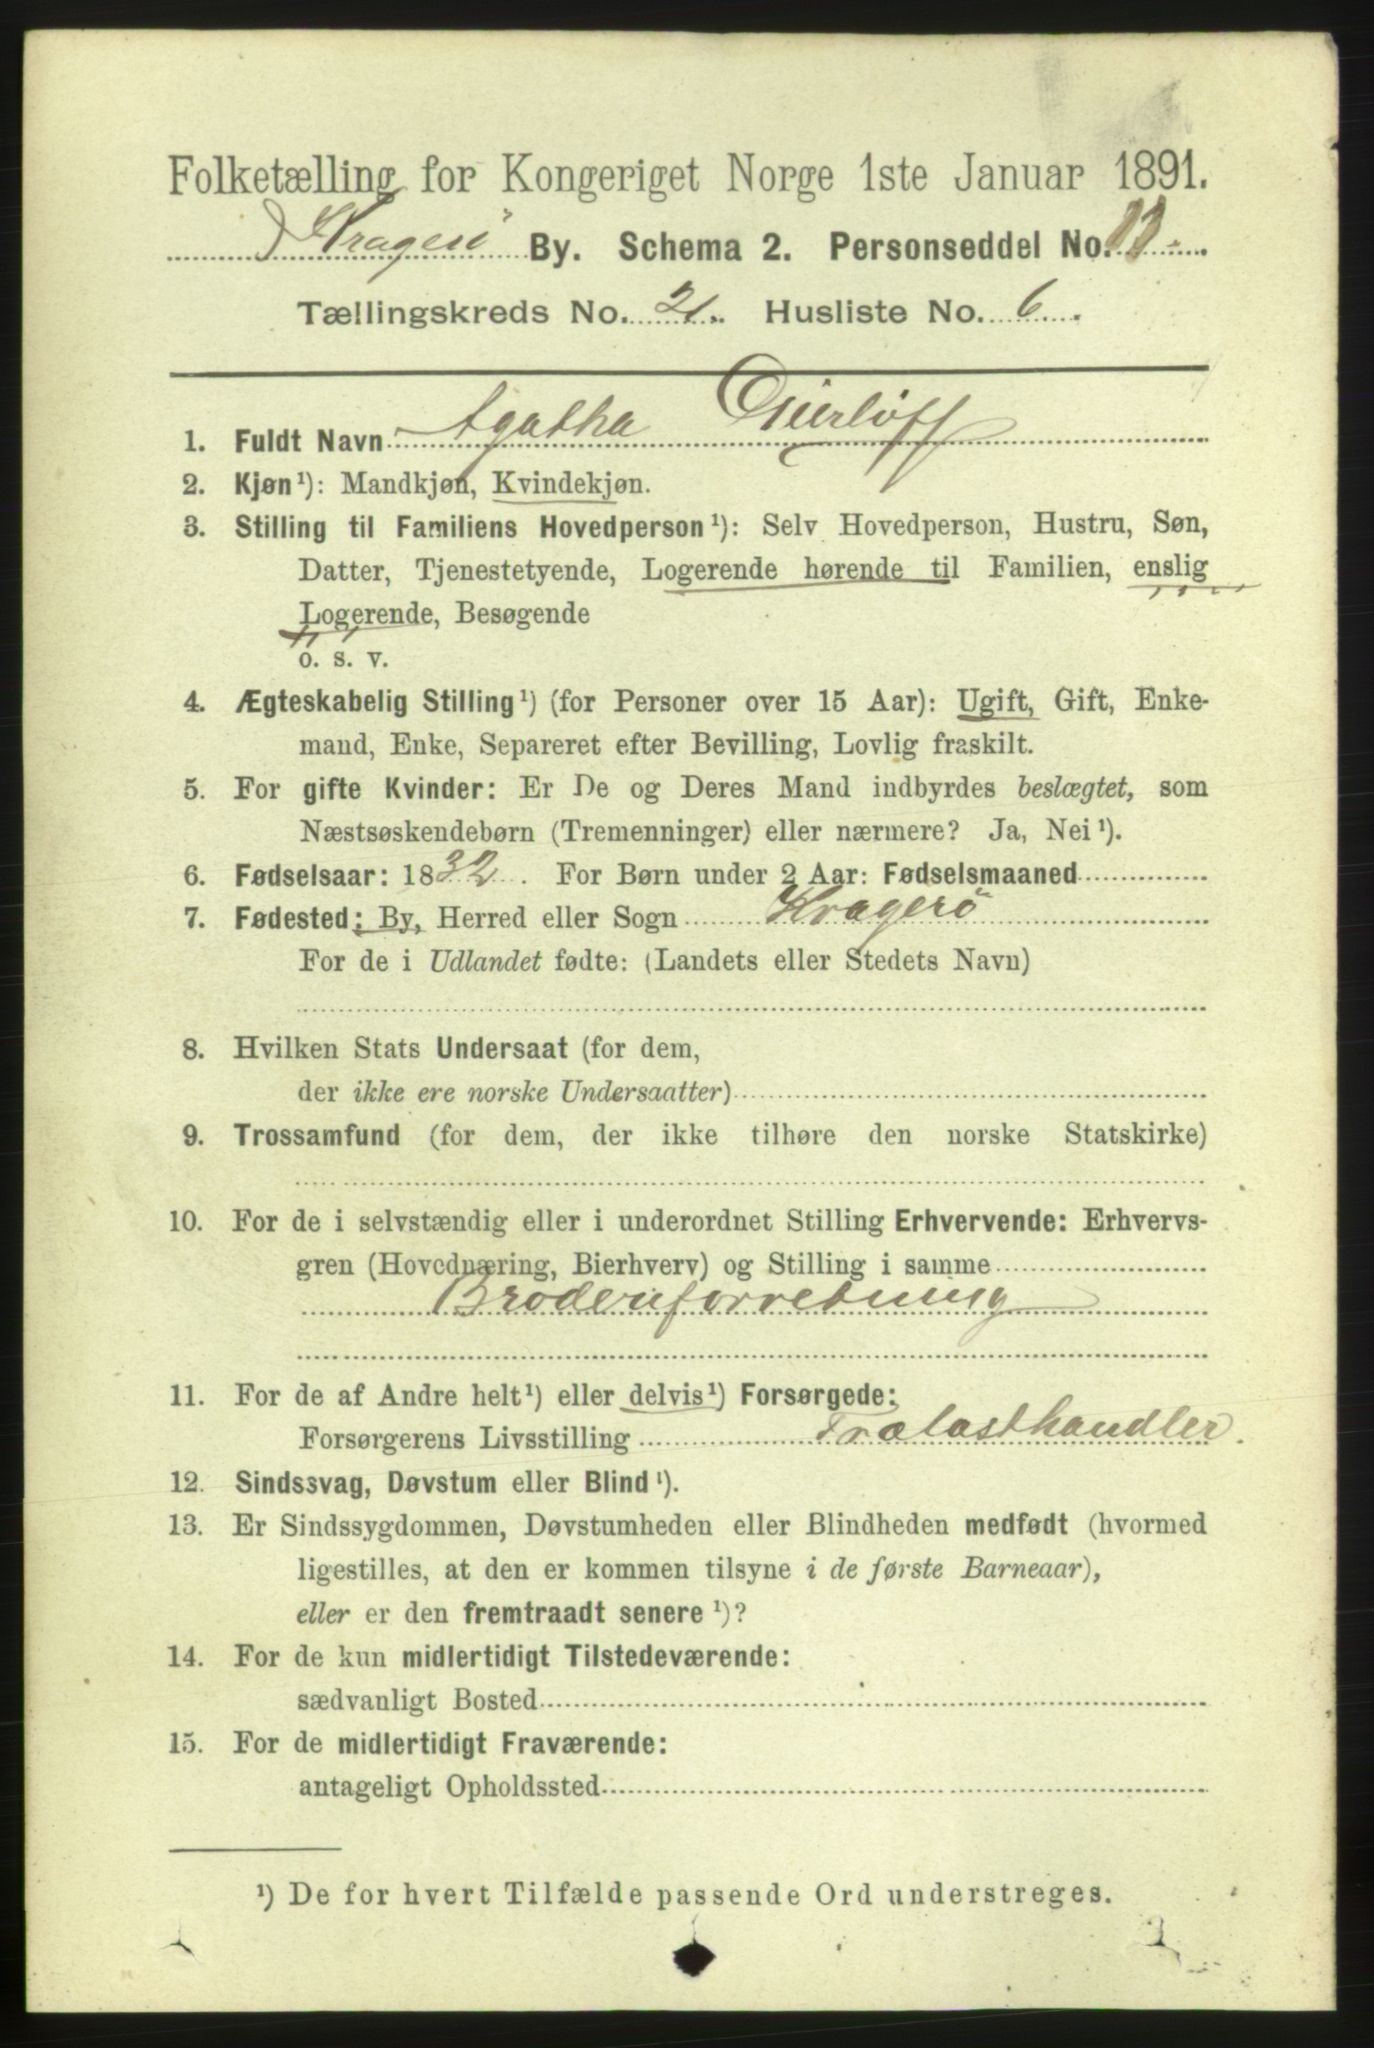 Folketælling for Kongeriget Norge 1ste Januar 1891.
Kragerö By. Schema 2. Personseddel No.
Tællingskreds No. 21. Husliste No. 6.
1. Fuldt Navn Agatha Dierløff
2. Kjøn¹): Mandkjøn, Kvindekjøn.
3. Stilling til Familiens Hovedperson¹): Selv Hovedperson, Hustru, Søn,
Datter, Tjenestetyende, Logerende hørende til Familien, enslig
Logerende, Besøgende
o. s. v.
4. Ægteskabelig Stilling¹) (for Personer over 15 Aar): Ugift, Gift, Enke-
mand, Enke, Separeret efter Bevilling, Lovlig fraskilt.
5. For gifte Kvinder: Er De og Deres Mand indbyrdes beslægtet, som
Næstsøskendebørn (Tremenninger) eller nærmere? Ja, Nei¹).
6. Fødselsaar: 1832. For Børn under 2 Aar: Fødselsmaaned
7. Fødested: By, Herred eller Sogn Kragerö
For de i Udlandet fødte: (Landets eller Stedets Navn)
8. Hvilken Stats Undersaat (for dem,
der ikke ere norske Undersaatter)
9. Trossamfund (for dem, der ikke tilhøre den norske Statskirke)
10. For de i selvstændig eller i underordnet Stilling Erhvervende: Erhvervs-
gren (Hovednæring, Bierhverv) og Stilling i samme
Broderiforretning
11. For de af Andre helt¹) eller delvis¹) Forsørgede:
Forsørgerens Livsstilling Trælasthandler.
12. Sindssvag, Døvstum eller Blind¹).
13. Er Sindssygdommen, Døvstumheden eller Blindheden medfødt (hvormed
ligestilles, at den er kommen tilsyne i de første Barneaar),
eller er den fremtraadt senere¹)?
14. For de kun midlertidigt Tilstedeværende:
sædvanligt Bosted
15. For de midlertidigt Fraværende:
antageligt Opholdssted
¹) De for hvert Tilfælde passende Ord understreges.